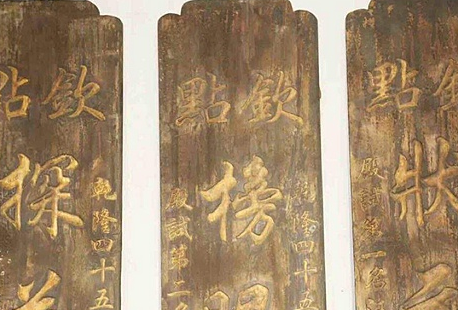 欽點
狀元
殿試第一名
欽點
乾隆四十五
榜眼
殿試第二名
欽點
乾隆四十五
探花